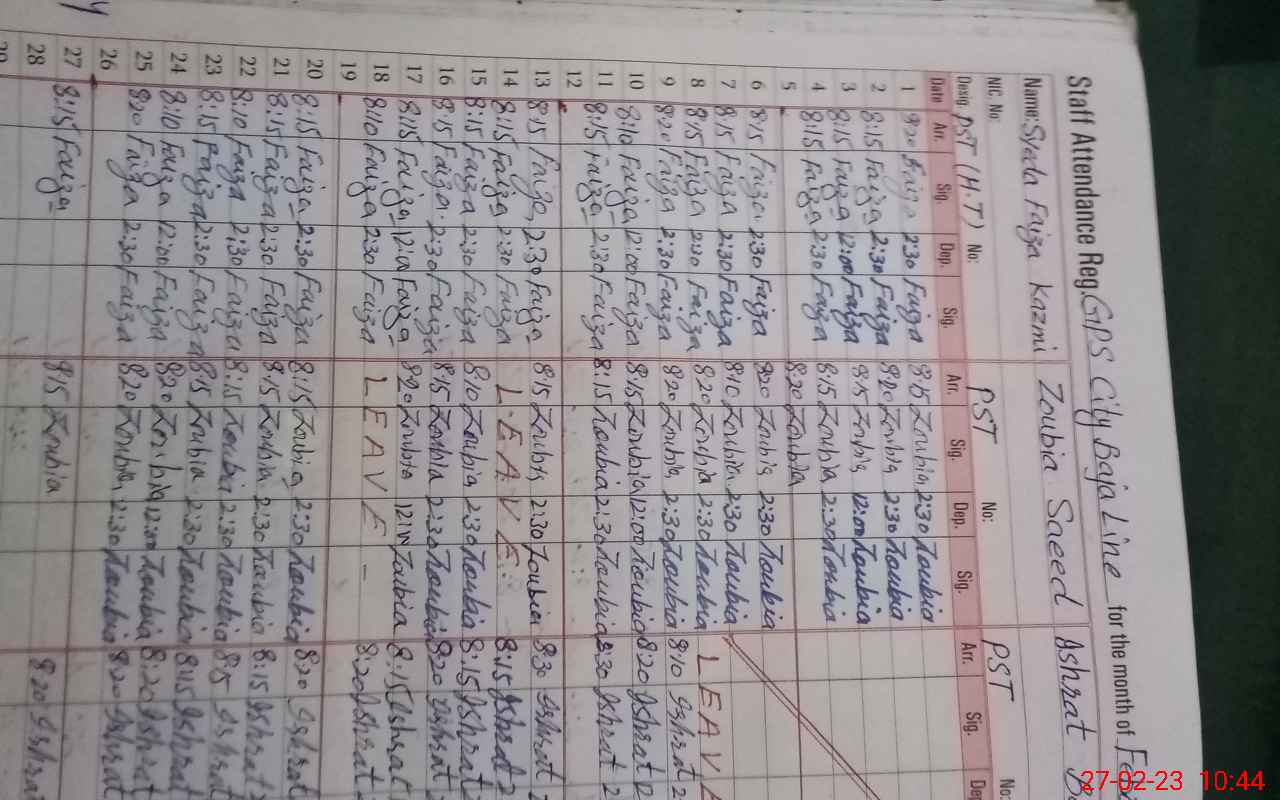 Staff Attendance Reg. GPS City Baja Line for the month of Feb
Name: Syeda Faiza Kazmi Zoubia Saeed Ishrat
NIC. No:
Desig. PST (H.T) No: PST No: PST No:
Date Arr. Sig. Dep. Sig. Arr. Sig. Dep. Sig. Arr. Sig. Dep
1 8:20 Faiza 2:30 Faiza 8:15 Zoubia 2:30 Zoubia
2 8:15 Faiza 2:30 Faiza 8:20 Zoubia 2:30 Zoubia
3 8:15 Faiza 12:00 Faiza 8:15 Zoubia 12:00 Zoubia
4 8:15 Faiza 2:30 Faiza 8:15 Zoubia 2:30 Zoubia
5 8:20 Zoubia
6 8:15 Faiza 2:30 Faiza 8:20 Zoubia 2:30 Zoubia
7 8:15 Faiza 2:30 Faiza 8:10 Zoubia 2:30 Zoubia
8 8:15 Faiza 2:30 Faiza 8:20 Zoubia 2:30 Zoubia LEAVE
9 8:20 Faiza 2:30 Faiza 8:20 Zoubia 2:30 Zoubia 8:10 Ishrat 2
10 8:10 Faiza 12:00 Faiza 8:15 Zoubia 12:00 Zoubia 8:20 Ishrat 12
11 8:15 Faiza 2:30 Faiza 8:15 Zoubia 2:30 Zoubia 8:30 Ishrat 2
12
13 8:15 Faiza 2:30 Faiza 8:15 Zoubia 2:30 Zoubia 8:30 Ishrat 2
14 8:15 Faiza 2:30 Faiza L.EAVE. 8:15 Ishrat 2
15 8:15 Faiza 2:30 Faiza 8:10 Zoubia 2:30 Zoubia 8:15 Ishrat 2
16 8:15 Faiza 2:30 Faiza 8:15 Zoubia 2:30 Zoubia 8:20 Ishrat
17 8:15 Faiza 12:00 Faiza 8:20 Zoubia 12:00 Zoubia 8:15 Ishrat
18 8:10 Faiza 2:30 Faiza LEAVE 8:20 Ishrat
19
20 8:15 Faiza 2:30 Faiza 8:15 Zoubia 2:30 Zoubia 8:20 Ishrat
21 8:15 Faiza 2:30 Faiza 8:15 Zoubia 2:30 Zoubia 8:15 Ishrat
22 8:10 Faiza 2:30 Faiza 8:15 Zoubia 2:30 Zoubia 8:15 Ishrat
23 8:15 Faiza 2:30 Faiza 8:15 Zoubia 2:30 Zoubia 8:15 Ishrat
24 8:10 Faiza 12:00 Faiza 8:20 Zoubia 12:00 Zoubia 8:20 Ishrat
25 8:20 Faiza 2:30 Faiza 8:20 Zoubia 2:30 Zoubia 8:20 Ishrat
26
27 8:15 Faiza 8:15 Zoubia 8:20 Ishrat
28
27-02-23 10:44